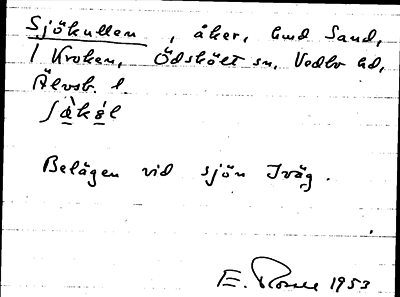 Sjökullen, åker, hmd Sand,
1 Kroken, Ödskölt sn, Vedbo hd,
Älvsb. l.
Belägen vid sjön Iväg.
E. 1953